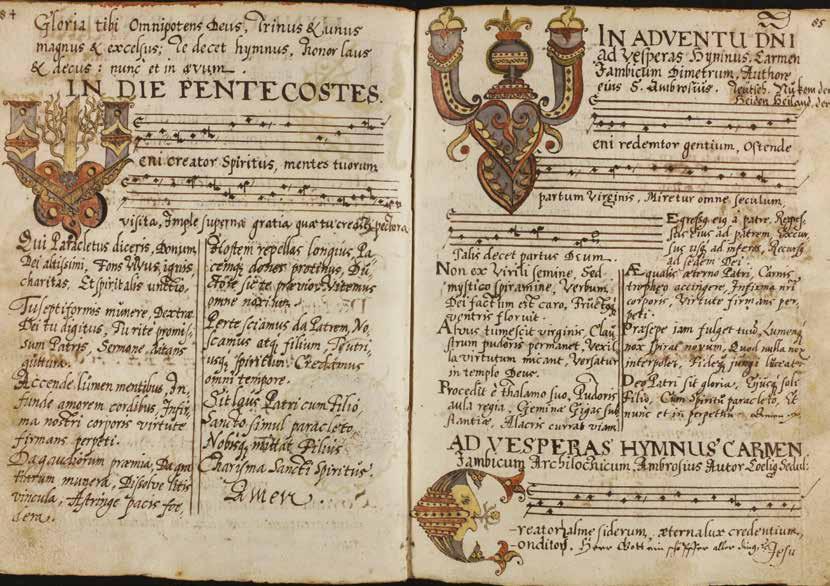 84
Gloria tibi Omnipotens Deus, Trinus & unus
magnus & excelsus; Te decet hymnus, honor laus
& decus: nunc et in ævum.
IN DIE PENTECOSTES.
eni creator Spiritus, mentes tuorum
visita, Imple superna gratia, quæ tu creasti pectora.
Qui Paracletus diceris, Donum
Dei altissimi, Fons vivus, ignis,
charitas, Et spiritalis unctio,
Tu septiformis munere, Dextræ
Dei tu digitus, Tu rite promis-
sum Patris, Sermone ditans
guttura.
Accende lumen mentibus, In
funde amorem cordibus, Infir
ma nostri corporis virtute
firmans perpeti.
Da gaudiorum præmia, Da gra
tiarum munera, Dissolve litis
vincula, Astringe pacis foe
dera.
Hostem repellas longius, Pa
cemq; dones protinus, Du
ctore sic te prævio, Vitemus
omne noxium.
Per te sciamus da Patrem, No
scamus atq; filium, Te utri-
usq; spiritum Credamus
omni tempore.
Sit laus Patri cum Filio,
Sancto simul paracleto,
Nobisq; mittat Filius
Charisma Sancti Spiritus.
Amen.
85
IN ADVENTU DNI
ad vesperas Hymnus, Carmen
Iambicum Dimetrum, Authore
eius S. Ambrosius. Teutsch. Nu kom der
Heiden Heiland, der
eni redemtor gentium, Ostende
partum virginis, Miretur omne seculum,
Talis decet partus Deum.
Egressq eiq à patre, Regres-
sus eius ad patrem, Excur-
sus usq ad inferos, Recursq
ad sedem Dei.
Non ex virili semine, Sed
mystico spiramine, Verbum
Dei factum est caro, Fructq
ventris floruit.
Alvus tumescit virginis, Clau
strum pudoris permanet, Vexil
la virtutum micant, Versatur
in templo Deus.
Procedit è thalamo suo, Pudoris
aula regia, Geminæ Gigas sub
stantiæ, Alacris currat viam.
Æqualis æterno Patri, Carnis
tropheo accingere, Infirma nri
corporis, Virtute firmans per-
peti.
Præsepe iam fulget tuū, Lumenq
nox spirat novum, Quod nulla nox
interpolet, Fideq jungi luceat.
Deo Patri sit gloria, Ejusq soli
Filio, Cum Spiritu paracleto, Et
nunc et in perpetuū. Amen
AD VESPERAS HYMNUS CARMEN
Iambicum Archilochicum, Ambrosius Autor
reator alme siderum, æterna lux credentium,
onditor. Herr Gott ein schöpffer aller ding, Jesu